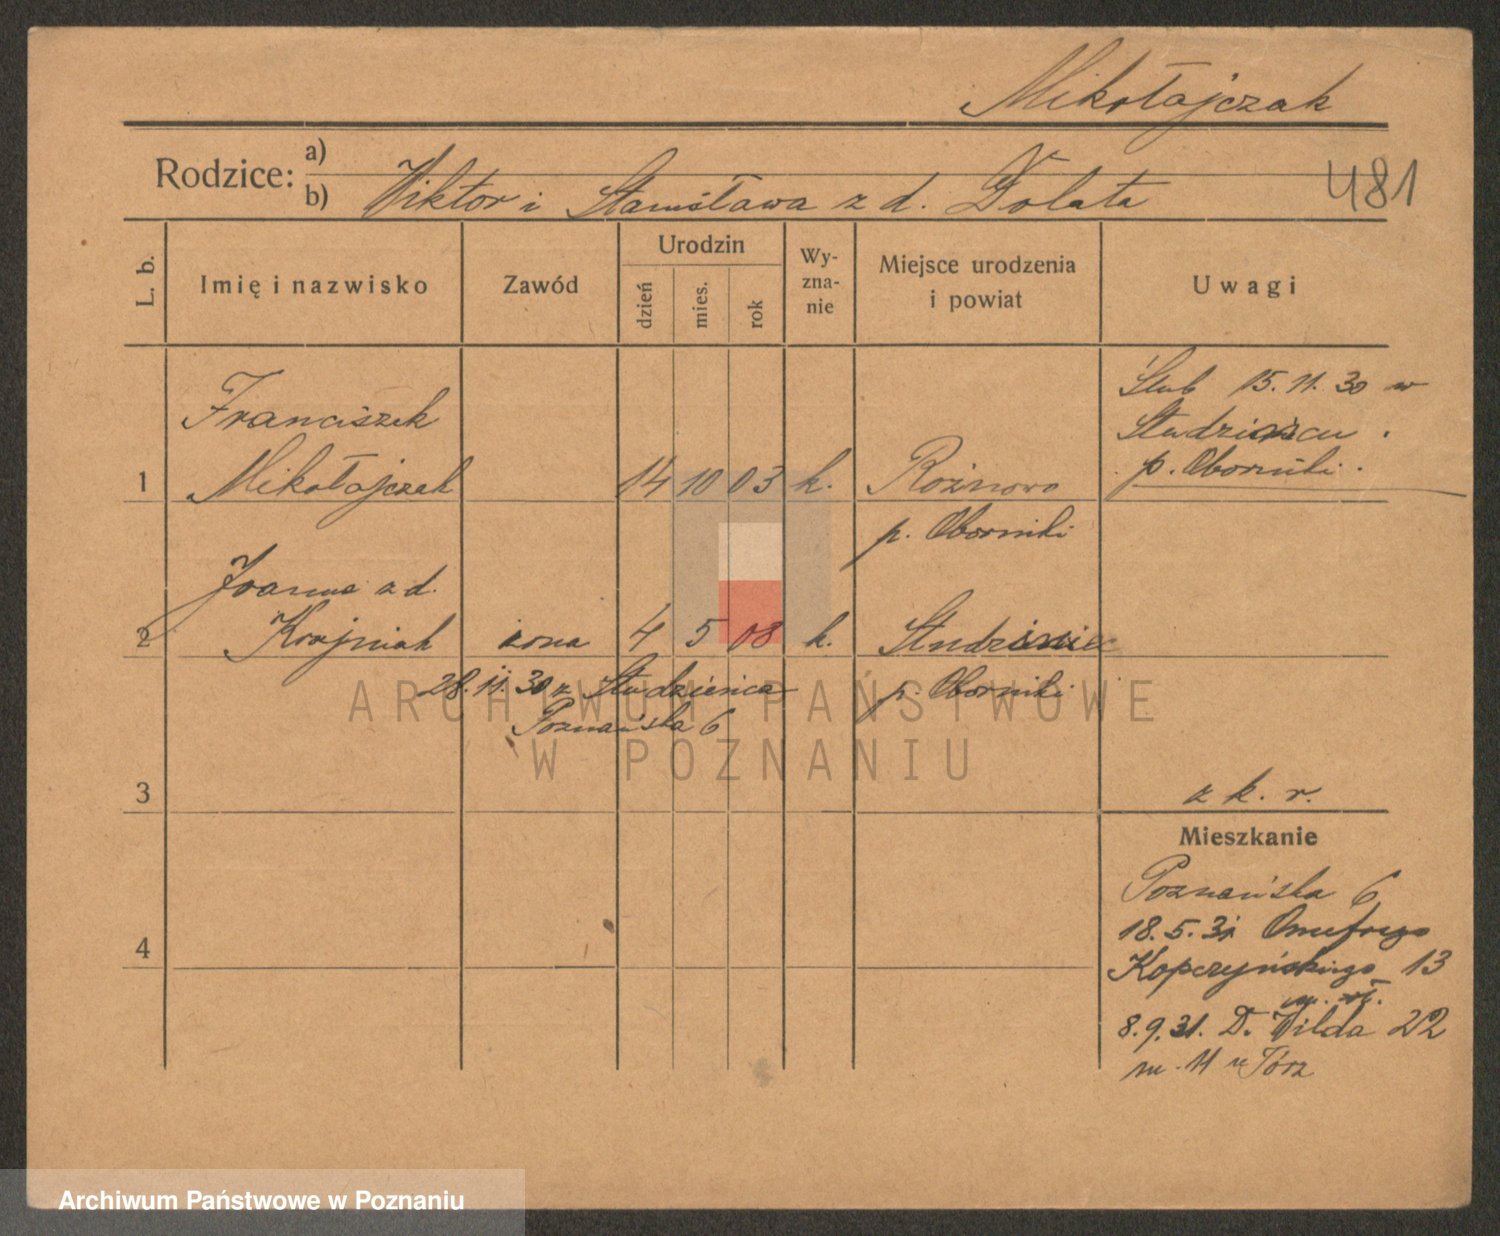 Mikołajczak
Rodzice:
a)
b) Wiktor i Stanisława z d. Dolata
481
L. b.
Imię i nazwisko
Zawód
Urodzin
dzień
mies.
rok
Wy-
zna-
nie
Miejsce urodzenia
i powiat
Uwagi
1
Franciszek
Mikołajczak
14 10 03 k.
Rożnowo
p. Oborniki
Ślub 15.11.30 w
Studzieńcu.
p. Oborniki.
2
Joanna z d.
Krajniak
żona 4 5 08 k.
Studzieniec
p. Oborniki
28.11.30 z Studzieńca
Poznańska 6
ARCHIWUM PAŃSTWOWE
W POZNANIU
3
z k. r.
Mieszkanie
Poznańska 6
18.5.31 Onufrego
Kopczyńskiego 13
m.
8.9.31. D. Wilda 22
m. 11 u
4
Archiwum Państwowe w Poznaniu